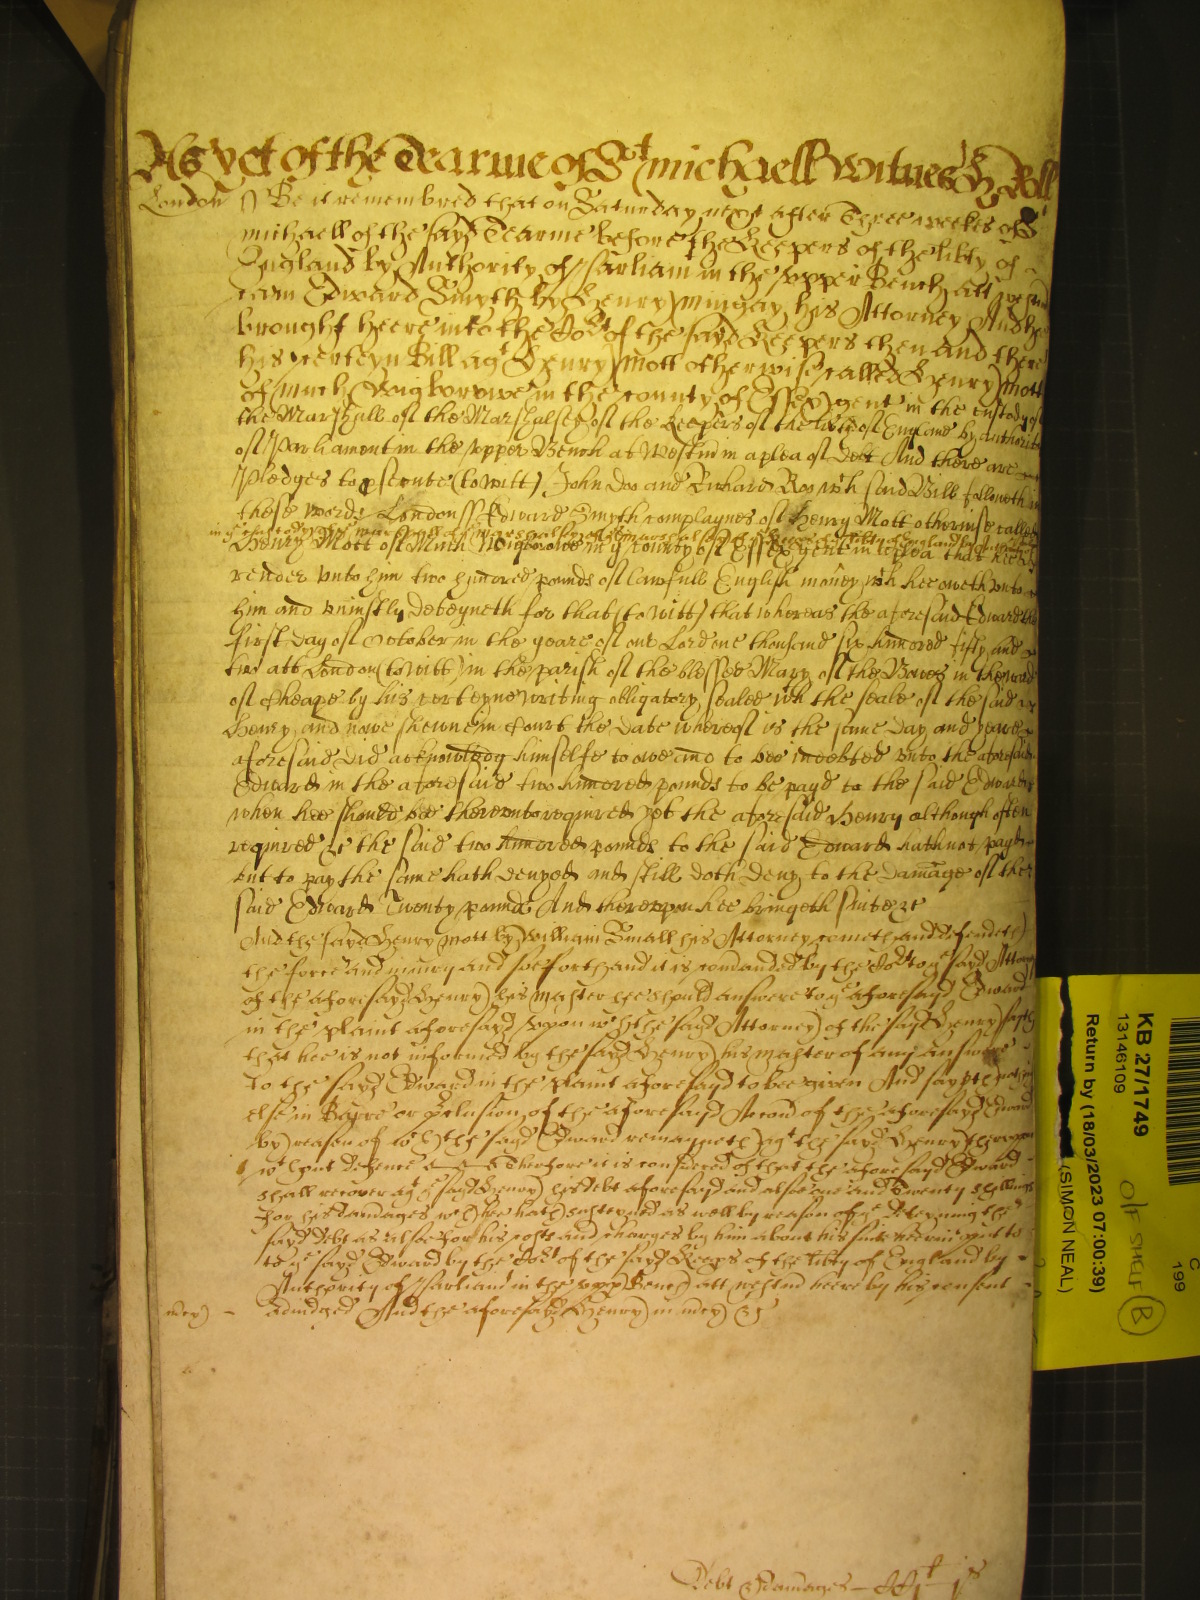 As yet of the Tearme of St Michaell Witnes H Roll
London ss Be it remembred that on Saturday next after Three weekes of St
Michaell of the sayd Tearme before the Keepers of the libty of
England by Authority of Parliam in the upper Bench att westm
cam Edward Smyth by Henry Mingay his Attorney And hee
brought heere into the Cort of the sayd Keepers then and there
his certeyn Bill agt Henry Mott otherwise called Henry Mott
of Much Wigborowe in the county of Essex gent in the custody of
the Marshall of the Marshalsey of the keepers of the liberty of England by authoritie
of Parliament in the upper Bench at Westm in a plea of Debt And there are
Pledges to psecute (to witt) John Doo and Richard Roo wch said Bill followeth in
these words London ss Edward Smyth complaynes of Henry Mott otherwise called
in ye custody of ye Marshall of ye Marshalsey of ye keepers of ye liberty of England by
Henry Mott of Much Wigborowe in ye county of Essex gent in plea that hee
render unto him two hundred pounds of lawfull English money wch hee oweth unto
him and uniustly deteyneth for that (to witt) that whereas the aforesaid Edward the
first day of October in the yeare of our Lord one thousand six hundred fifty and
two att London (to witt) in the parish of the blessed Mary of the Bowes in the ward
of Cheape by his certeyne writing obligatory sealed wth the seale of the said
Henry and nowe shewne in Court the date whereof is the same day and yeare
aforesaid did acknowledg himselfe to owe and to bee indebted unto the aforesaid
Edward in the aforesaid two hundred pounds to be payd to the said Edward
when hee should bee thereunto required yet the aforesaid Henry although often
required &c the said two hundred pounds to the said Edward hath not payd
but to pay the same hath denyed and still doth deny to the damage of the
said Edward Twenty pounds And thereupon hee bringeth suite &c
And the sayd Henry Mott by William Small his Attorney cometh and defendeth
the force and iniury and soe forth and it is comanded by the Cort to ye sayd Attorney
of the aforesayd Henry his Master hee should answere to ye aforesayd Edward
in the plaint aforesayd upon wch the sayd Attorney of the sayd Henry sayth
that hee is not informed by the sayd Henry his Master of any answere
to the sayd Edward in the plaint aforesayd to bee given And sayth nothing
else in Barre or pclusion of the aforesayd Accon of the aforesayd Edward
by reason of wch the sayd Edward remayneth agt the sayd Henry thereupon
wthout defence &c Therfore it is considered of that the aforesayd Edward
shall recover agt ye sayd Henry his debt aforesayd and alsoe one and Twenty shillings
for his damages wch hee hath susteyned as well by reason of ye deteyning the
sayd debt as alsoe for his costs and charges by him about his suite in ye put to
to ye sayd Edward by the Cort of the sayd Keeps of the libty of England by
Authority of Parliam in the upp Bench att westm heere by his consent
mcy adiudged And the aforesayd Henry in mcy &c
Debt & damages
KB 27/1749
13146109
Return by (18/03/2023 07:00:39)
(SIMON NEAL)
C
199
O/F SHELF B